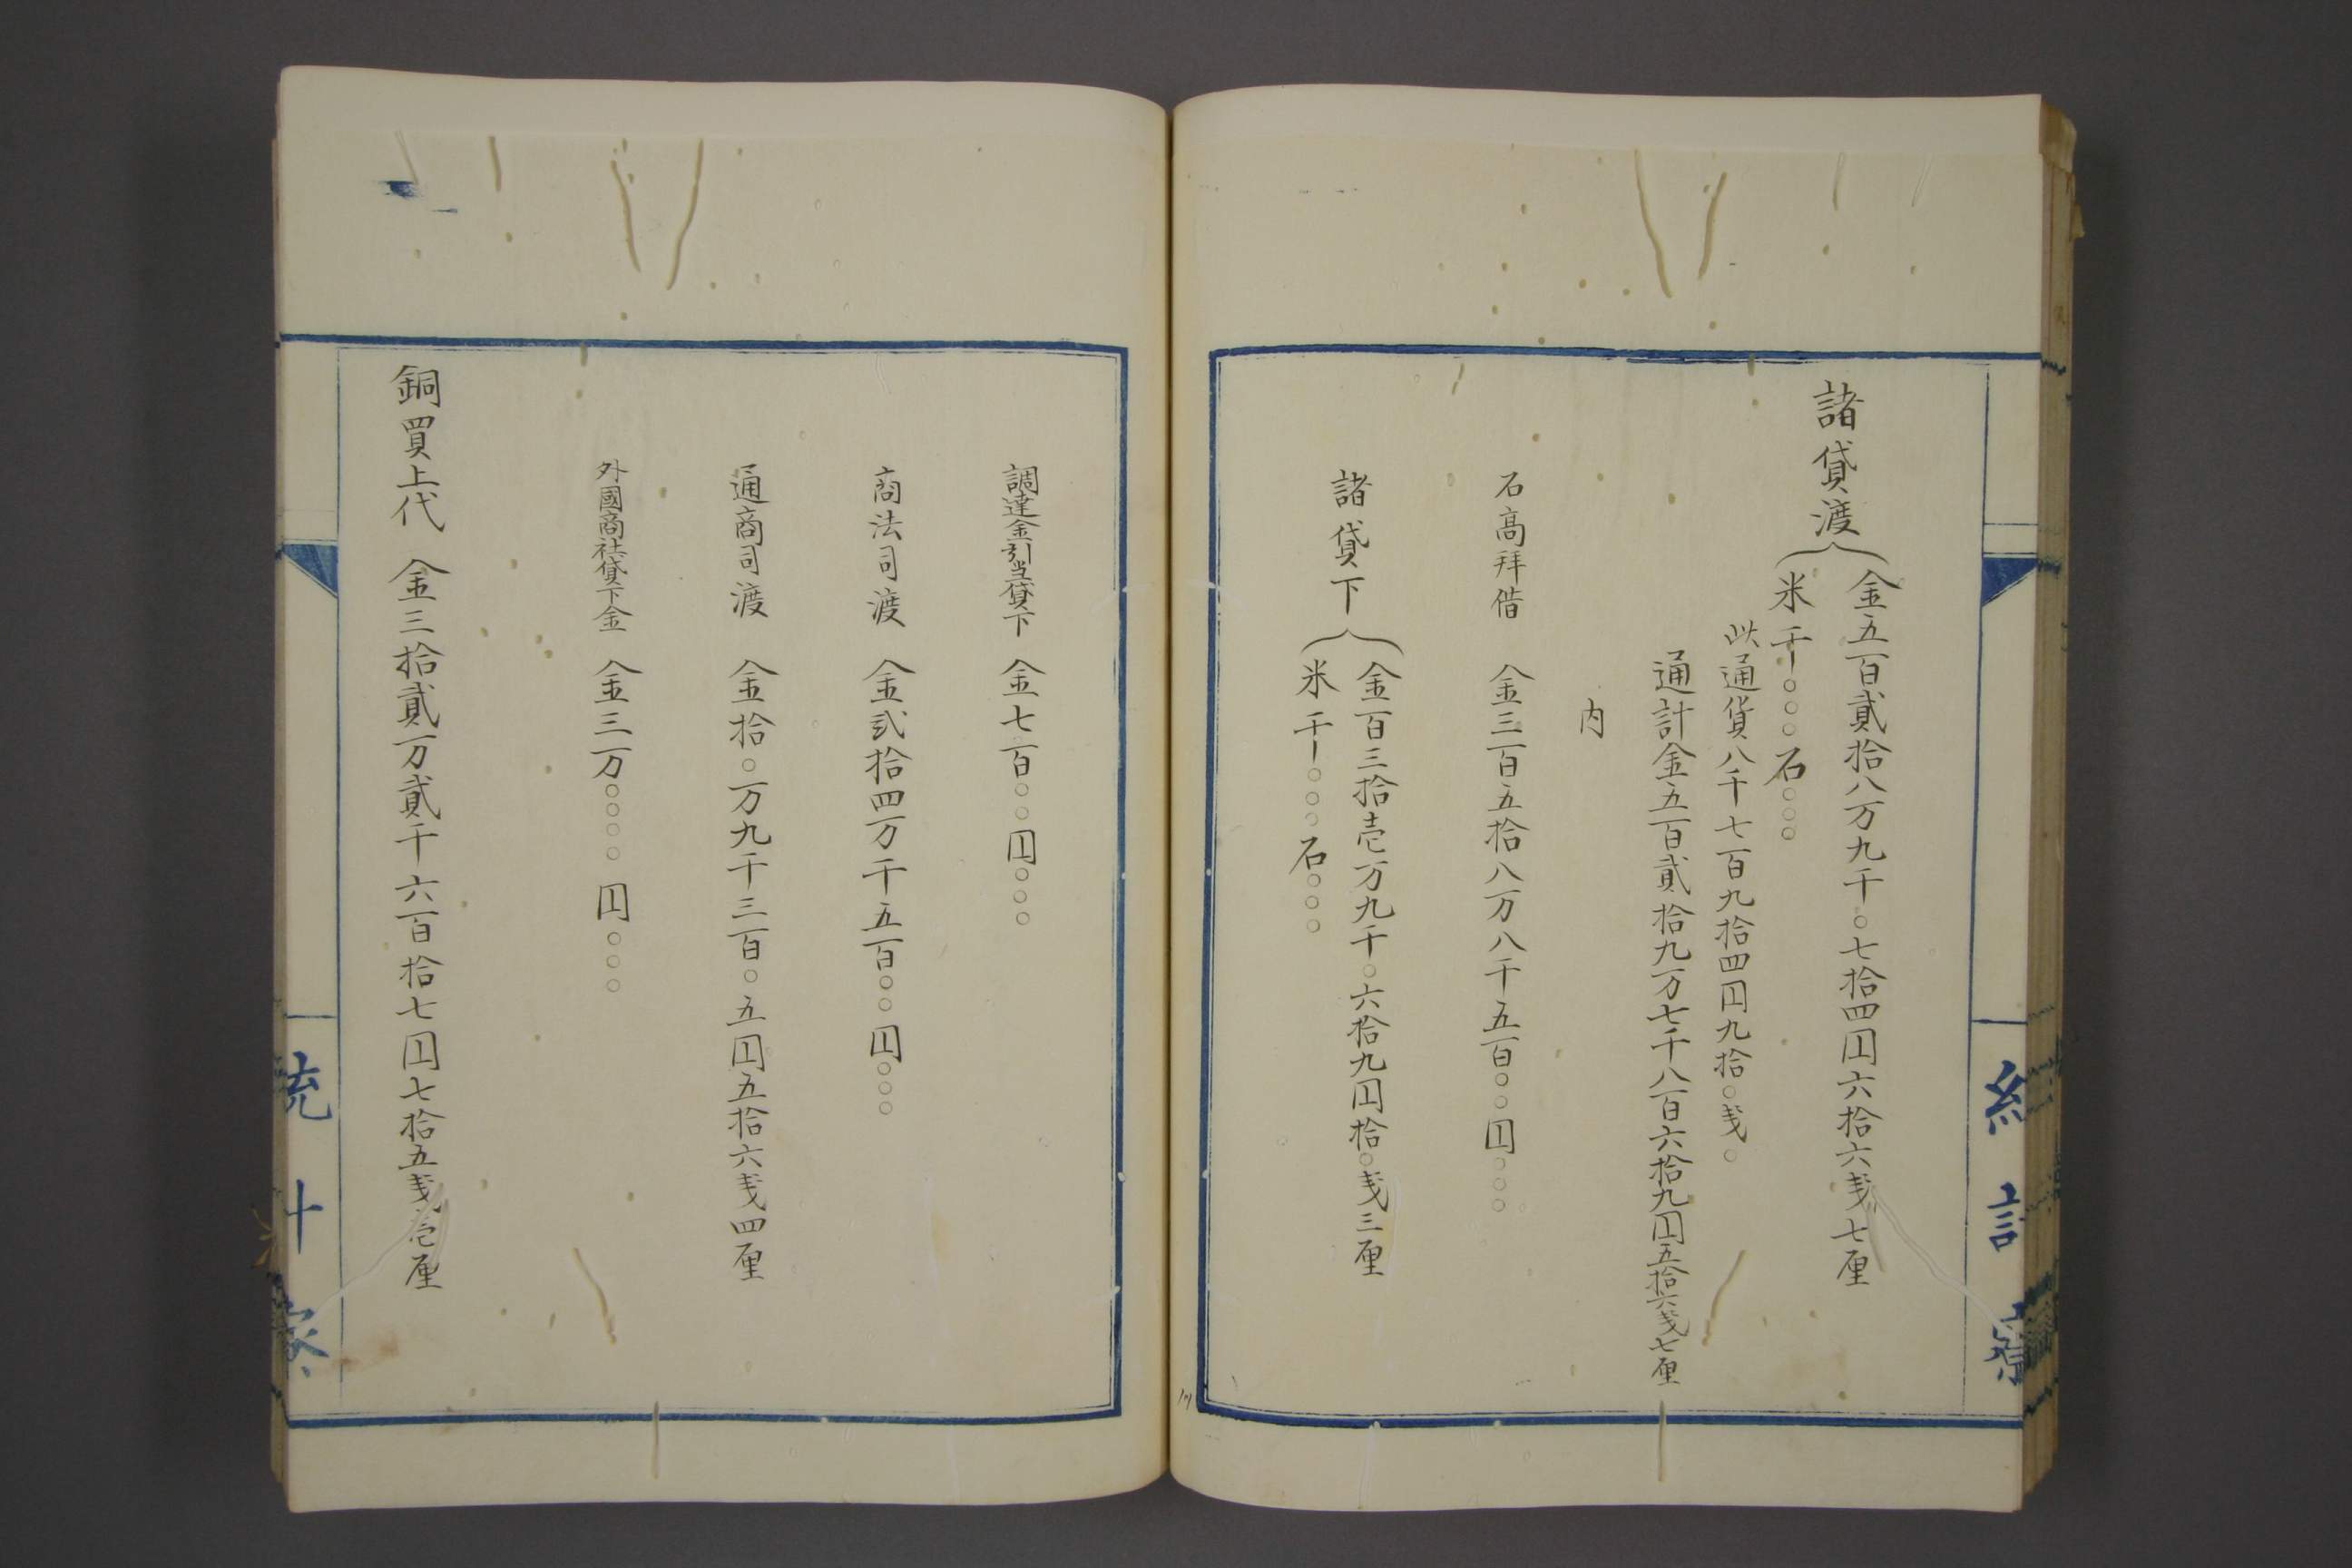 統計寮
諸貸渡
金五百貳拾八万九千〇七拾四円六拾六戋七厘
米千〇〇〇石〇〇〇
此通貨八千七百九拾四円九拾〇戋〇
通計金五百貳拾九万七千八百六拾九円五拾六戋七厘
内
石高拜借　金三百五拾八万八千五百〇〇円〇〇〇
諸貸下
金百三拾壱万九千〇六拾九円拾〇戋三厘
米千〇〇〇石〇〇〇
調達金引当貸下　金七百〇〇円〇〇〇
商法司渡　金弐拾四万千五百〇〇円〇〇〇
通商司渡　金拾〇万九千三百〇五円五拾六戋四厘
外國商社貸下金　金三万〇〇〇〇円〇〇〇
銅買上代　金三拾貳万貳千六百拾七円七拾五戋壱厘
統計寮